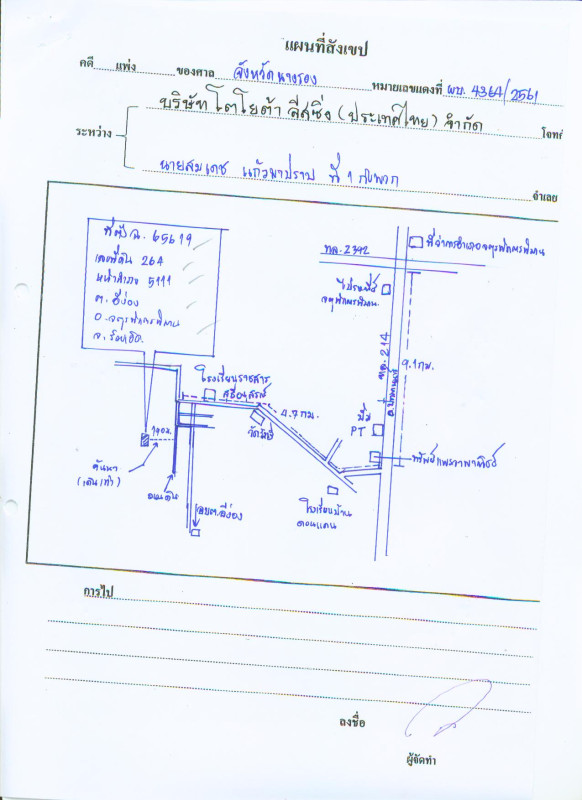 แผนที่สังเขป
คดี แพ่ง ของศาล จังหวัดนางรอง หมายเลขแดงที่ ผบ. 4364/2561
บริษัท โตโยต้า ลีสซิ่ง (ประเทศไทย) จำกัด โจทก์
ระหว่าง
นายสมเดช แก้วนาปราบ ที่ 1 กับพวก จำเลย
ที่ดิน ฉ. 65619
เลขที่ดิน 264
หน้าสำรวจ 5111
ต. อีง่อง
อ. จตุรพักตรพิมาน
จ. ร้อยเอ็ด
ทล. 2342
ที่ว่าการอำเภอจตุรพักตรพิมาน
ไปรษณีย์
จตุรพักตรพิมาน
ทล. 214
9.1 กม.
โรงเรียนราชสาร
4.7 กม.
ปั๊ม
PT
190 ม.
คันนา
(เดินเท้า)
ถนนดิน
อบต. อีง่อง
โรงเรียนบ้าน
ดอนแคน
การไป
ลงชื่อ
ผู้จัดทำ